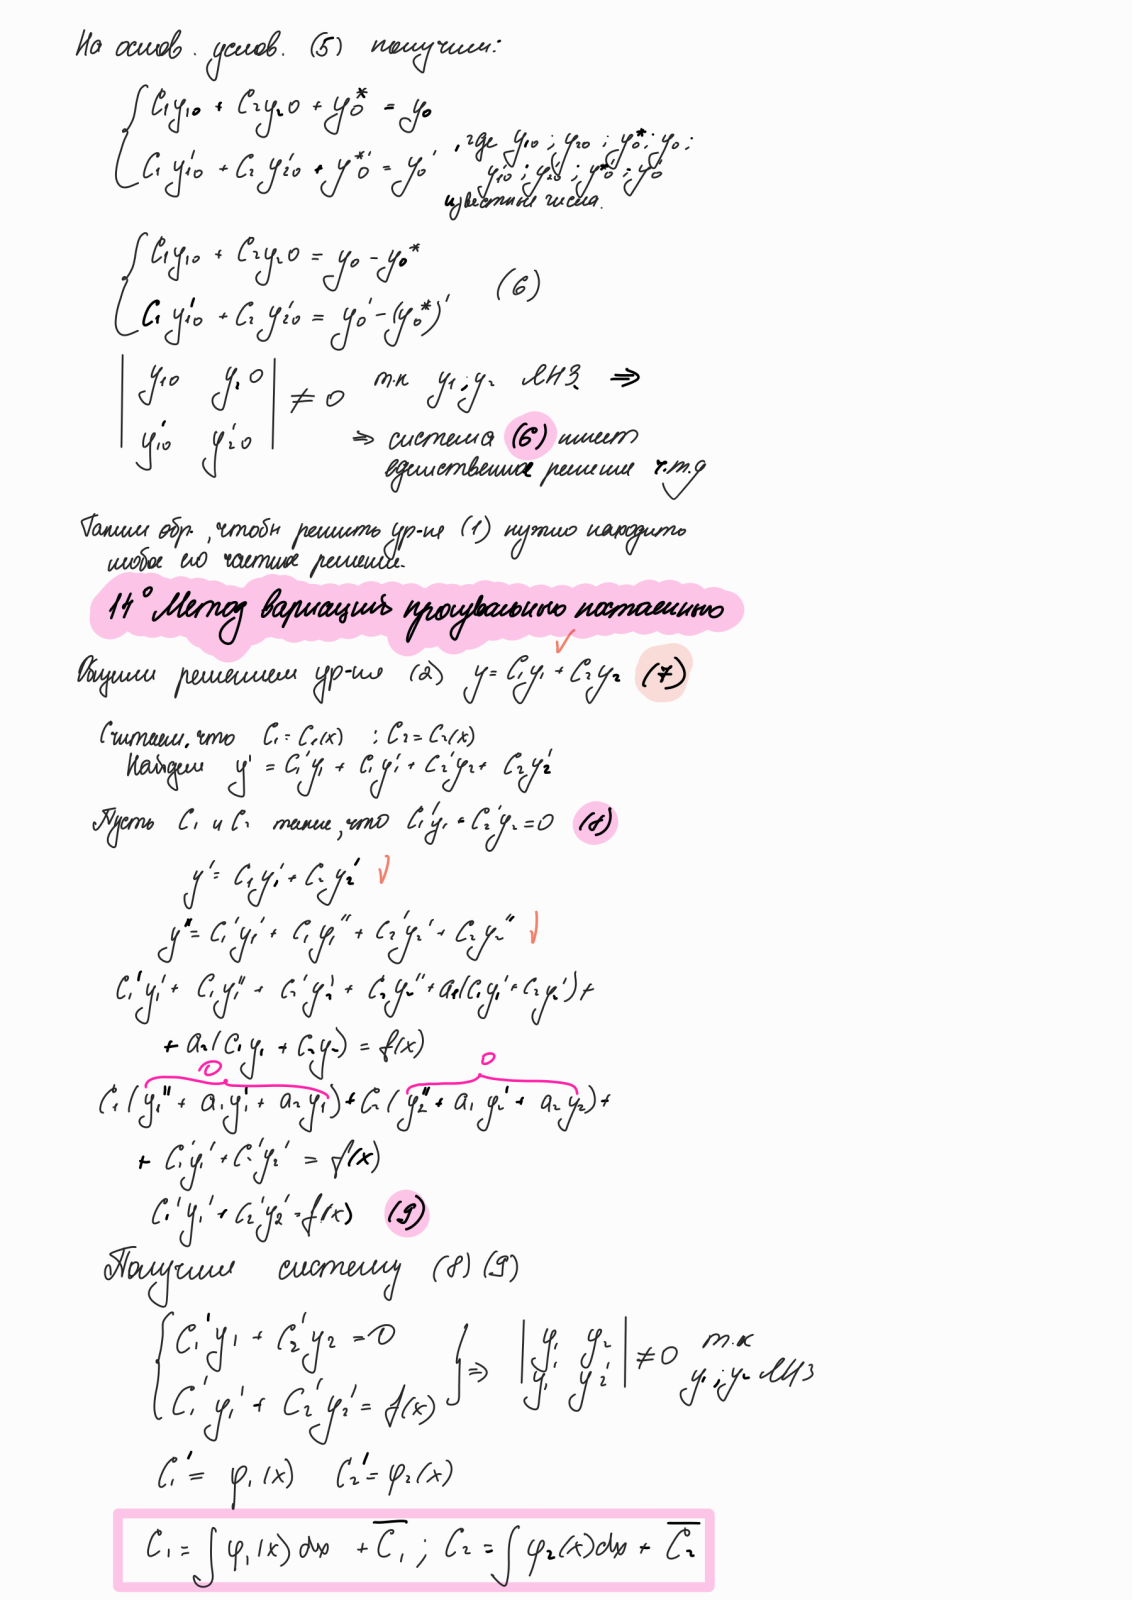 На основ. услов. (5) получим:
C₁y₁₀ + C₂y₂0 + y₀* = y₀
C₁y₁₀' + C₂y₂₀' + y₀*' = y₀'
, где y₁₀ ; y₂₀ ; y₀* ; y₀ ;
y₁₀' ; y₂₀' ; y₀*' ; y₀'
известные числа.
C₁y₁₀ + C₂y₂0 = y₀ - y₀*
C₁y₁₀' + C₂y₂₀' = y₀' - (y₀*)' (6)
| y₁₀ y₂0 |
| y₁₀' y₂'0 | ≠ 0 т.к y₁ ; y₂ ЛНЗ ⇒
⇒ система (6) имеет
единственное решение ч.т.д
Таким обр., чтобы решить ур-ие (1) нужно находить
любое его частное решение.
14° Метод вариаций произвольно постоянно
Общим решением ур-ие (2) y = C₁y₁ + C₂y₂ (7)
Считаем, что C₁ = C₁(x) ; C₂ = C₂(x)
Найдем y' = C₁'y₁ + C₁y₁' + C₂'y₂ + C₂y₂'
Пусть C₁ и C₂ такие, что C₁'y₁ + C₂'y₂ = 0 (8)
y' = C₁y₁' + C₂y₂'
y'' = C₁'y₁' + C₁y₁'' + C₂'y₂' + C₂y₂''
C₁'y₁' + C₁y₁'' + C₂'y₂' + C₂y₂'' + a₁(C₁y₁' + C₂y₂') +
+ a₂(C₁y₁ + C₂y₂) = f(x)
0 0
C₁(y₁'' + a₁y₁' + a₂y₁) + C₂(y₂'' + a₁y₂' + a₂y₂) +
+ C₁'y₁' + C₂'y₂' = f(x)
C₁'y₁' + C₂'y₂' = f(x) (9)
Получим систему (8) (9)
C₁'y₁ + C₂'y₂ = 0
C₁'y₁' + C₂'y₂' = f(x)
⇒ | y₁ y₂ |
| y₁' y₂' | ≠ 0 т.к
y₁ ; y₂ ЛНЗ
C₁' = φ₁(x) C₂' = φ₂(x)
C₁ = ∫ φ₁(x) dx + C̅₁ ; C₂ = ∫ φ₂(x) dx + C̅₂